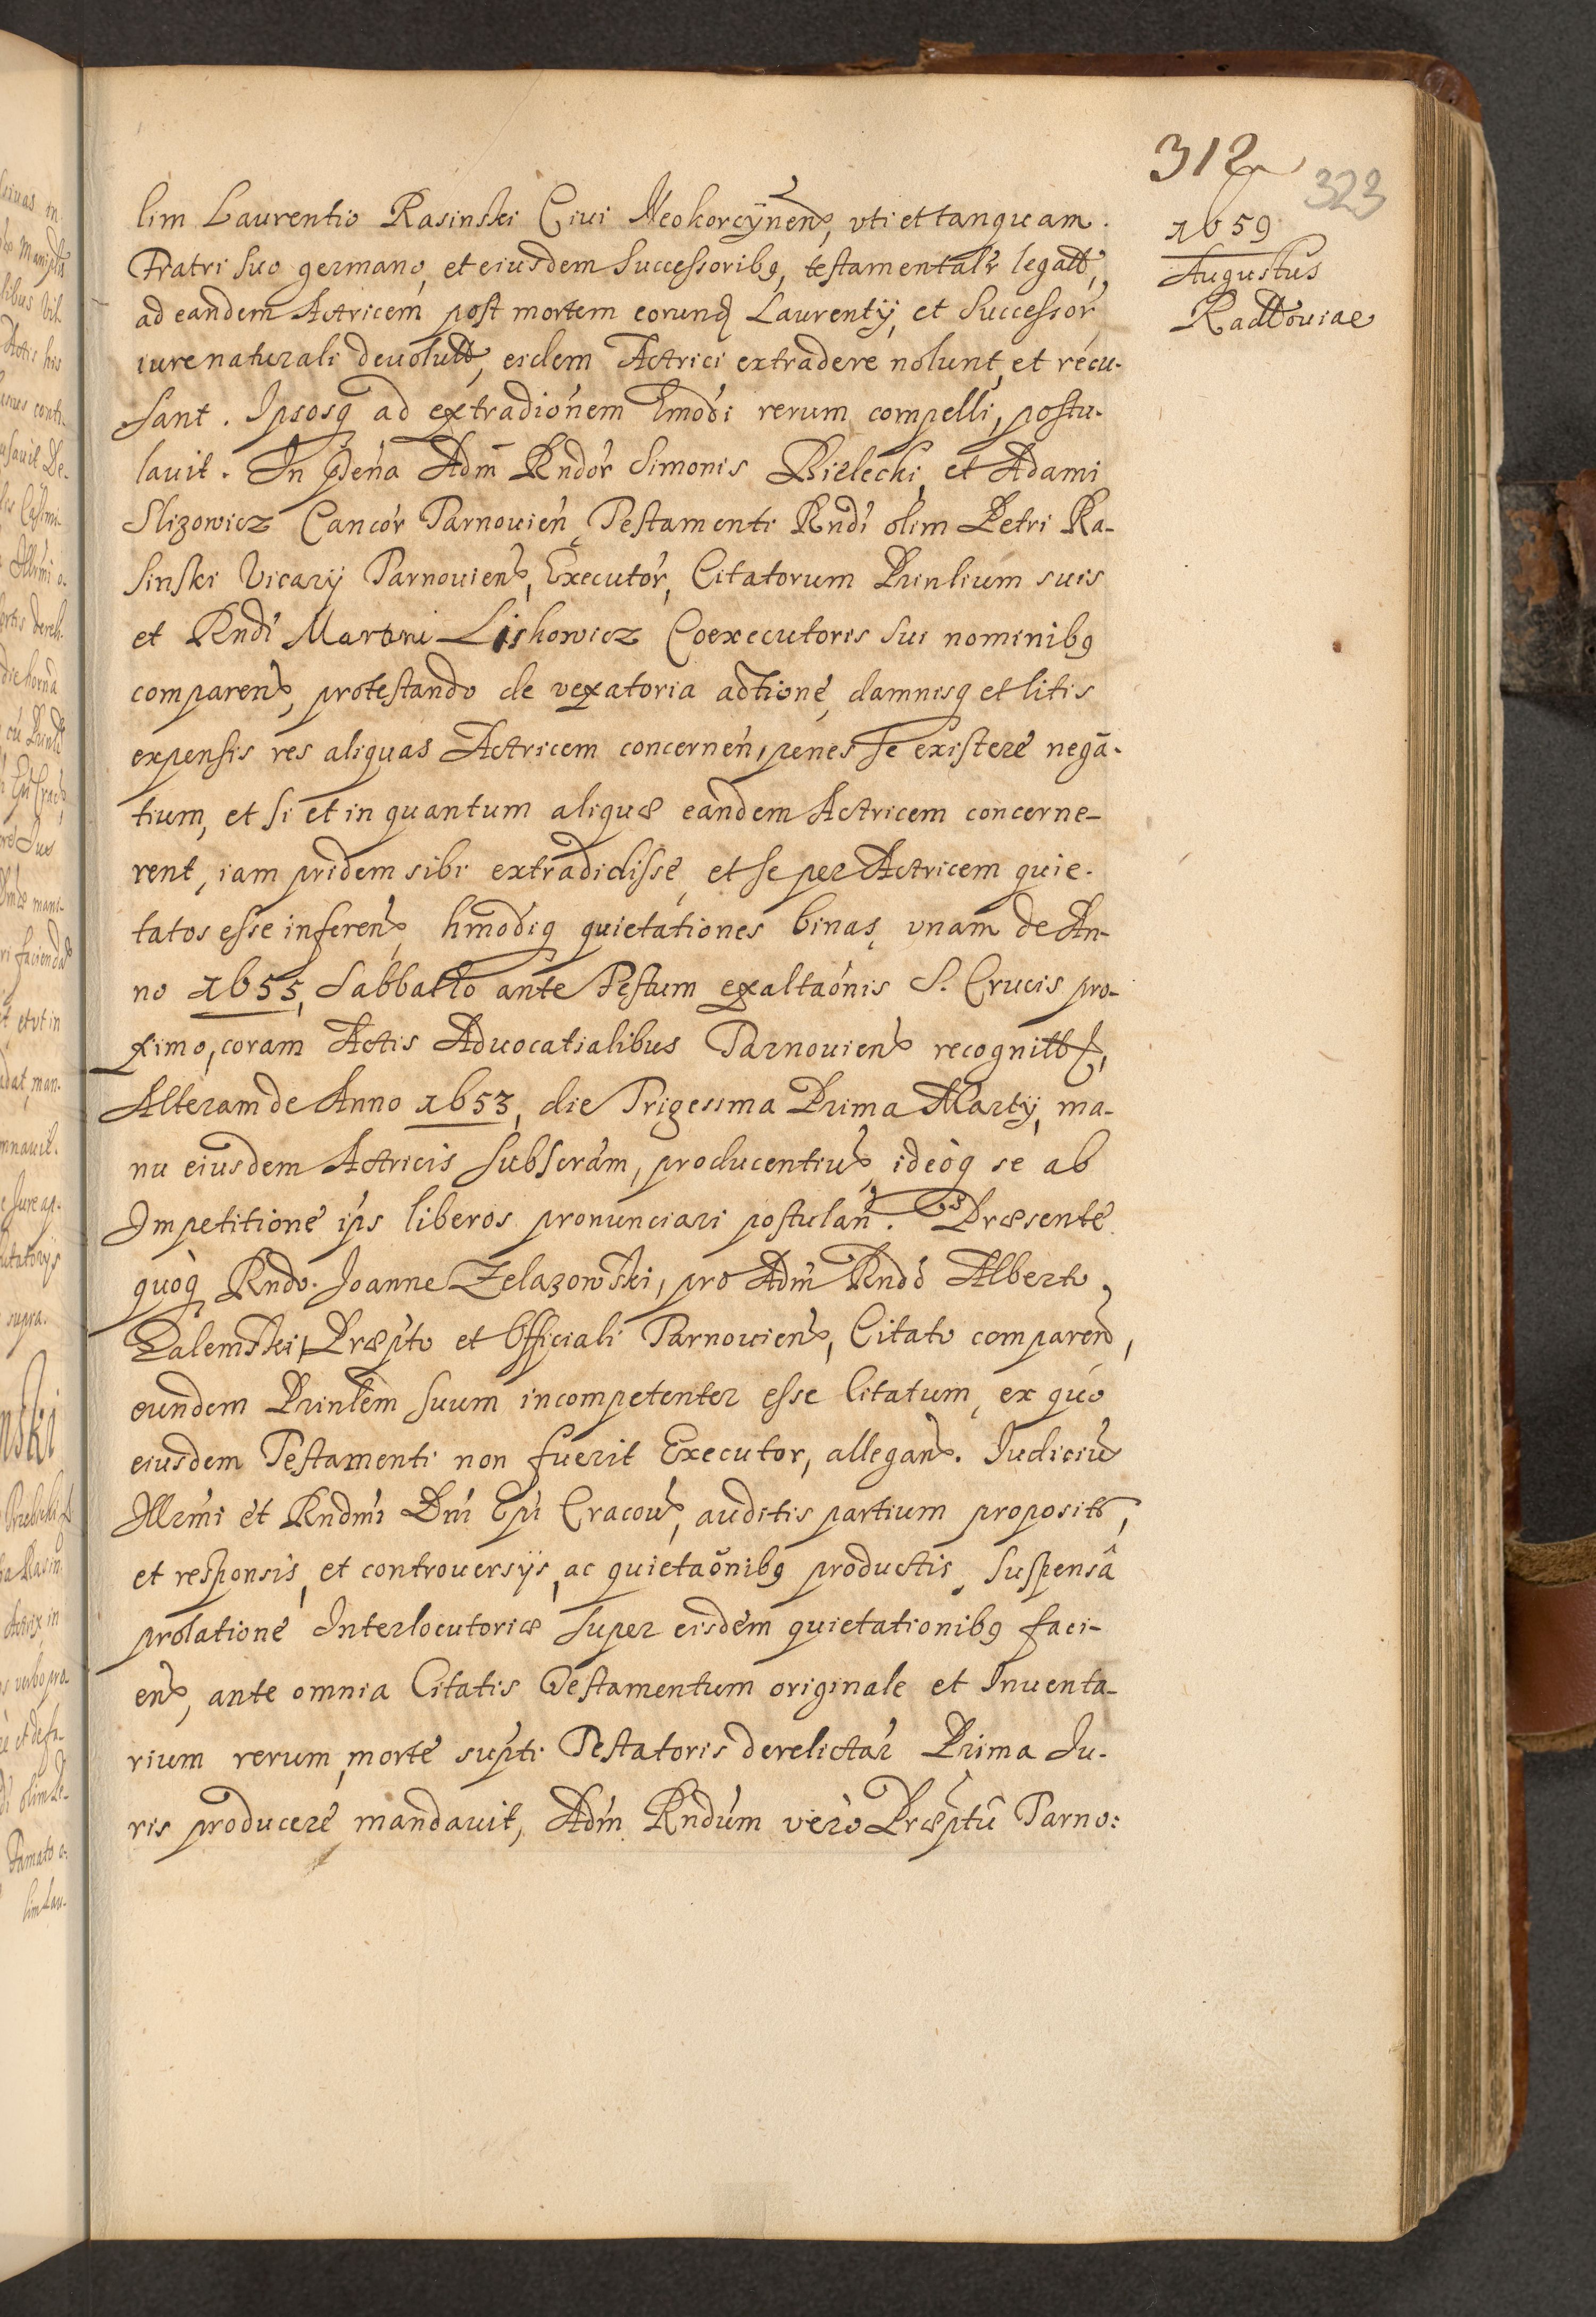 312
323
1659
Augustus
Radłoviae
lim Laurentio Rasinski Ciui Neokorcÿnen, vti et tanquam
Fratri suo germano, et eiusdem Successoribq, testamentalr legatt,
ad eandem Actricem post mortem eorund Laurentÿ, et Successor
iure naturali deuolutt, eidem Actrici extradere nolunt, et recu-
sant. Ipsosq ad extradionem hmodi rerum compelli, postu-
lauit. In pntia Adm Rndor Simonis Bielecki, et Adami
Slizowicz Cancor Tarnouien, Testamenti Rndi olim Petri Ra-
sinski Vicarÿ Tarnouien, Executor, Citatorum Prinlium suis
et Rndi Martini Liskowicz Coexecutoris sui nominibq
comparen, protestando de vexatoria actione, damnisq et litis
expensis res aliquas Actricem concernen, penes se existere nega-
tium, et si et in quantum aliquæ eandem Actricem concerne-
rent, iam pridem sibi extradidisse, et se per Actricem quie-
tatos esse inferen, hmodiq quietationes binas, vnam de An-
no 1655, Sabbatto ante Festum exaltaonis S. Crucis pro-
ximo, coram Actis Aduocatialibus Tarnouien recognitt,
Alteram de Anno 1653, die Trigesima Prima Martÿ, ma-
nu eiusdem Actricis subscram, producentiu, ideoq se ab
Impetitione ips liberos pronunciari postulan. Præsente
quoq Rndo Joanne Zelazowski, pro Adm Rndo Alberto
Zalemski, Præpto et Officiali Tarnouien, Citato comparen,
eundem Prinlem suum incompetenter esse Citatum, ex quo
eiusdem Testamenti non fuerit Executor, allegan. Iudiciu
Illrmi et Rndmi Dni Epi Cracou, auditis partium proposit,
et responsis, et controuersÿs, ac quietaonibq productis, suspensâ
prolatione Interlocutoriæ super eisdem quietationibq faci-
en, ante omnia Citatis Testamentum originale et Inuenta-
rium rerum, morte supti Testatoris derelictar Prima Iu-
ris producere mandauit, Adm Rndum vero Præptu Tarno: